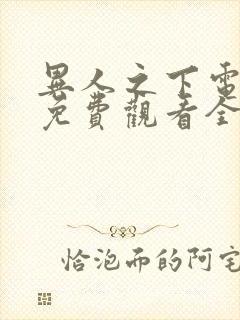 異人之下電
免費觀看全
恰泡而的阿宅